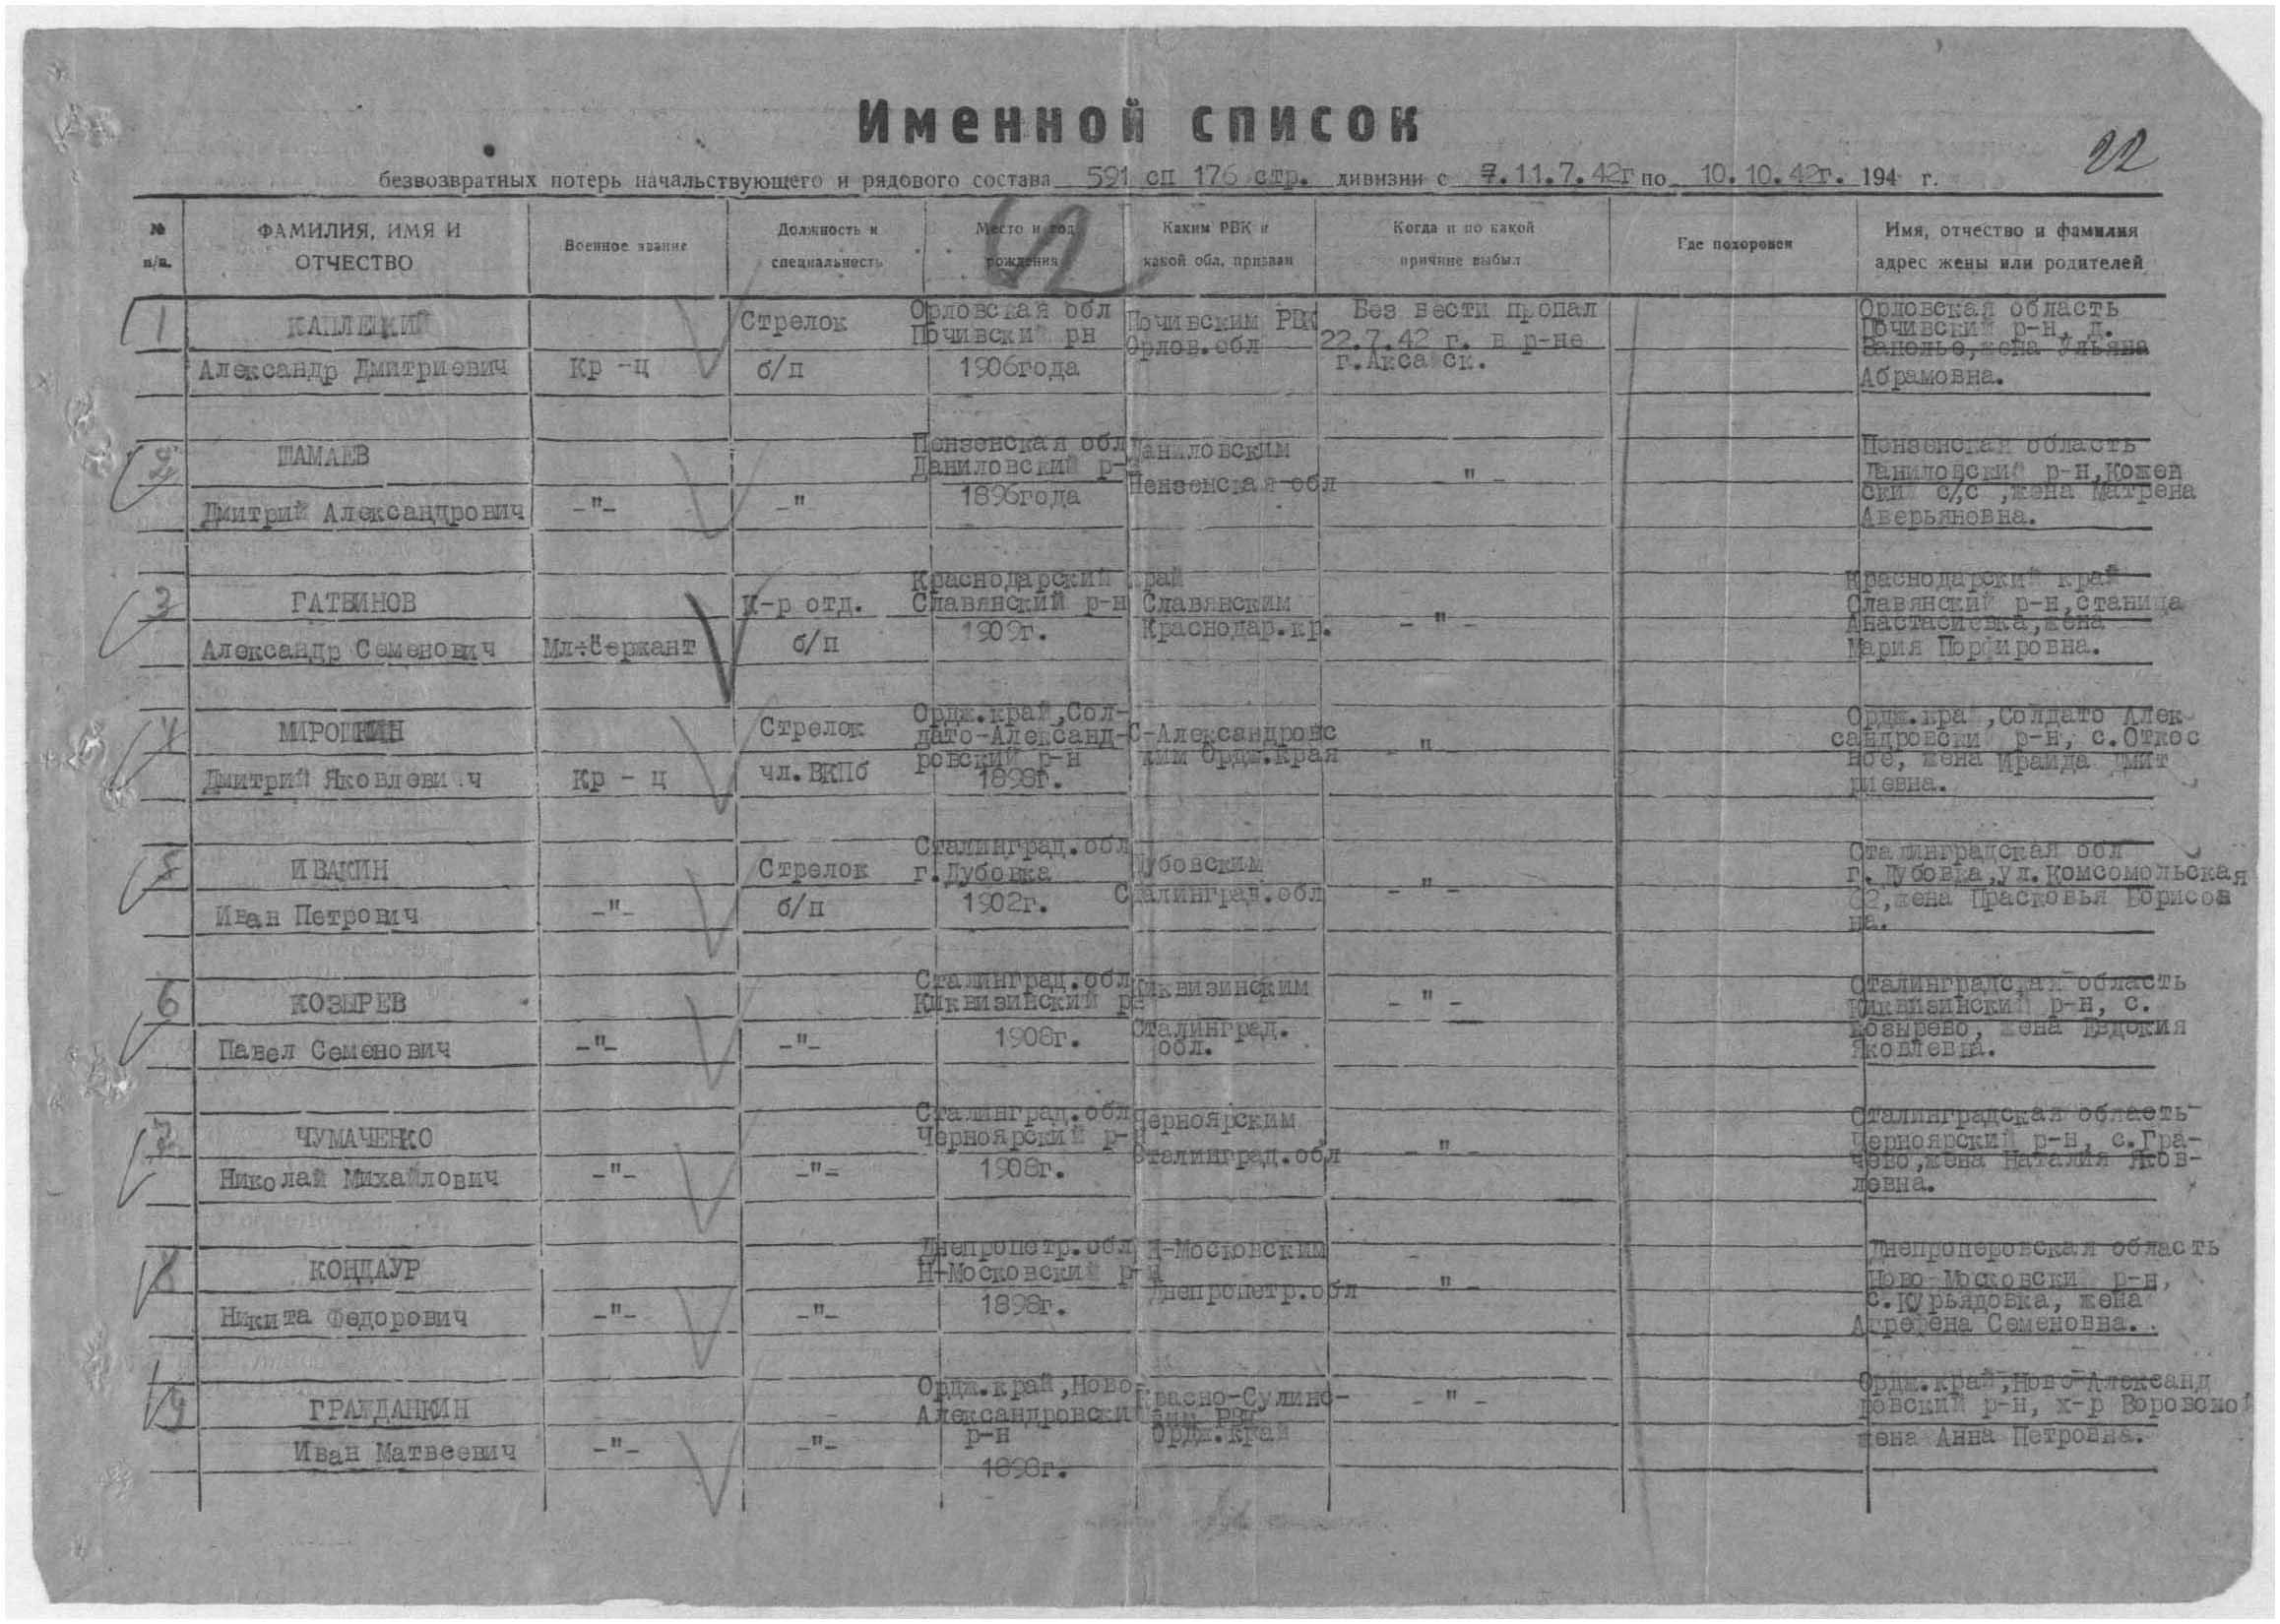 Именной список
22
безвозвратных потерь начальствующего и рядового состава 591 сп 176 стр. дивизии с 7.11.7.42г по 10.10.42г. 194 г.
№ п/п.
ФАМИЛИЯ, ИМЯ И ОТЧЕСТВО
Военное звание
Должность и специальность
Место и год рождения
Каким РВК и какой обл. призван
Когда и по какой причине выбыл
Где похоронен
Имя, отчество и фамилия адрес жены или родителей
1
КАПЛЕЦКИЙ
Александр Дмитриевич
Кр-ц
Стрелок
б/п
Орловская обл
Почивский рн
1906года
Почивским РВК
Орлов.обл
Без вести пропал
22.7.42 г. в р-не
г.Аксайск.
Орловская область
Почивский р-н, д.
Заполье, жена Ульяна
Абрамовна.
2
ШАМАЕВ
Дмитрий Александрович
-"-
-"
Пензенская обл
Даниловский р-н
1896года
Даниловским
Пензенская обл
-"-
Пензенская область
Даниловский р-н, Кожев
ский с/с, жена Матрена
Аверьяновна.
3
ГАТВИНОВ
Александр Семенович
Мл-Сержант
К-р отд.
б/п
Краснодарский край
Славянский р-н
1909г.
Славянским
Краснодар.кр.
-"-
Краснодарский край
Славянский р-н, станица
Анастасиевка, жена
Мария Порфировна.
4
МИРОШКИН
Дмитрий Яковлеви ч
Кр - ц
Стрелок
чл.ВКПб
Ордж.край,Сол-
дато-Александ-
ровский р-н
1898г.
С-Александровс
ким Ордж.края
-"
Ордж.край,Солдато Алек
сандровский р-н, с.Откос
ное, жена Ираида Дмит
риевна.
5
ИВАКИН
Иван Петрович
-"-
Стрелок
б/п
Сталинград.обл
г.Дубовка
1902г.
Дубовским
Сталинград.обл
-"-
Сталинградская обл
г.Дубовка,ул.Комсомольская
62,жена Прасковья Борисов
на.
6
КОЗЫРЕВ
Павел Семенович
-"-
-"-
Сталинград.обл
Киквизинский рн
1908г.
Киквизинским
Сталинград.
обл.
-"-
Сталинградская область
Киквизинский р-н, с.
Козырево, жена Евдокия
Яковлевна.
7
ЧУМАЧЕНКО
Николай Михайлович
-"-
-"-
Сталинград.обл
Черноярский р-н
1908г.
Черноярским
Сталинград.обл
-"-
Сталинградская область
Черноярский р-н, с.Гра-
чево,жена Наталия Яков-
левна.
8
КОНДАУР
Никита Федорович
-"-
-"-
Днепропетр.обл
Н-Московский р-н
1898г.
Н-Московским
Днепропетр.обл
-"-
Днепроперовская область
Ново-Московский р-н,
с.Курьядовка, жена
Агрефена Семеновна.
9
ГРАЖДАНКИН
Иван Матвеевич
-"-
-"-
Ордж.край,Ново-
Александровский
р-н
1898г.
Красно-Сулинс-
ким РВК
Ордж.край
-"-
Ордж.край,Ново-Александ
ровский р-н, х-р Воровской
жена Анна Петровна.